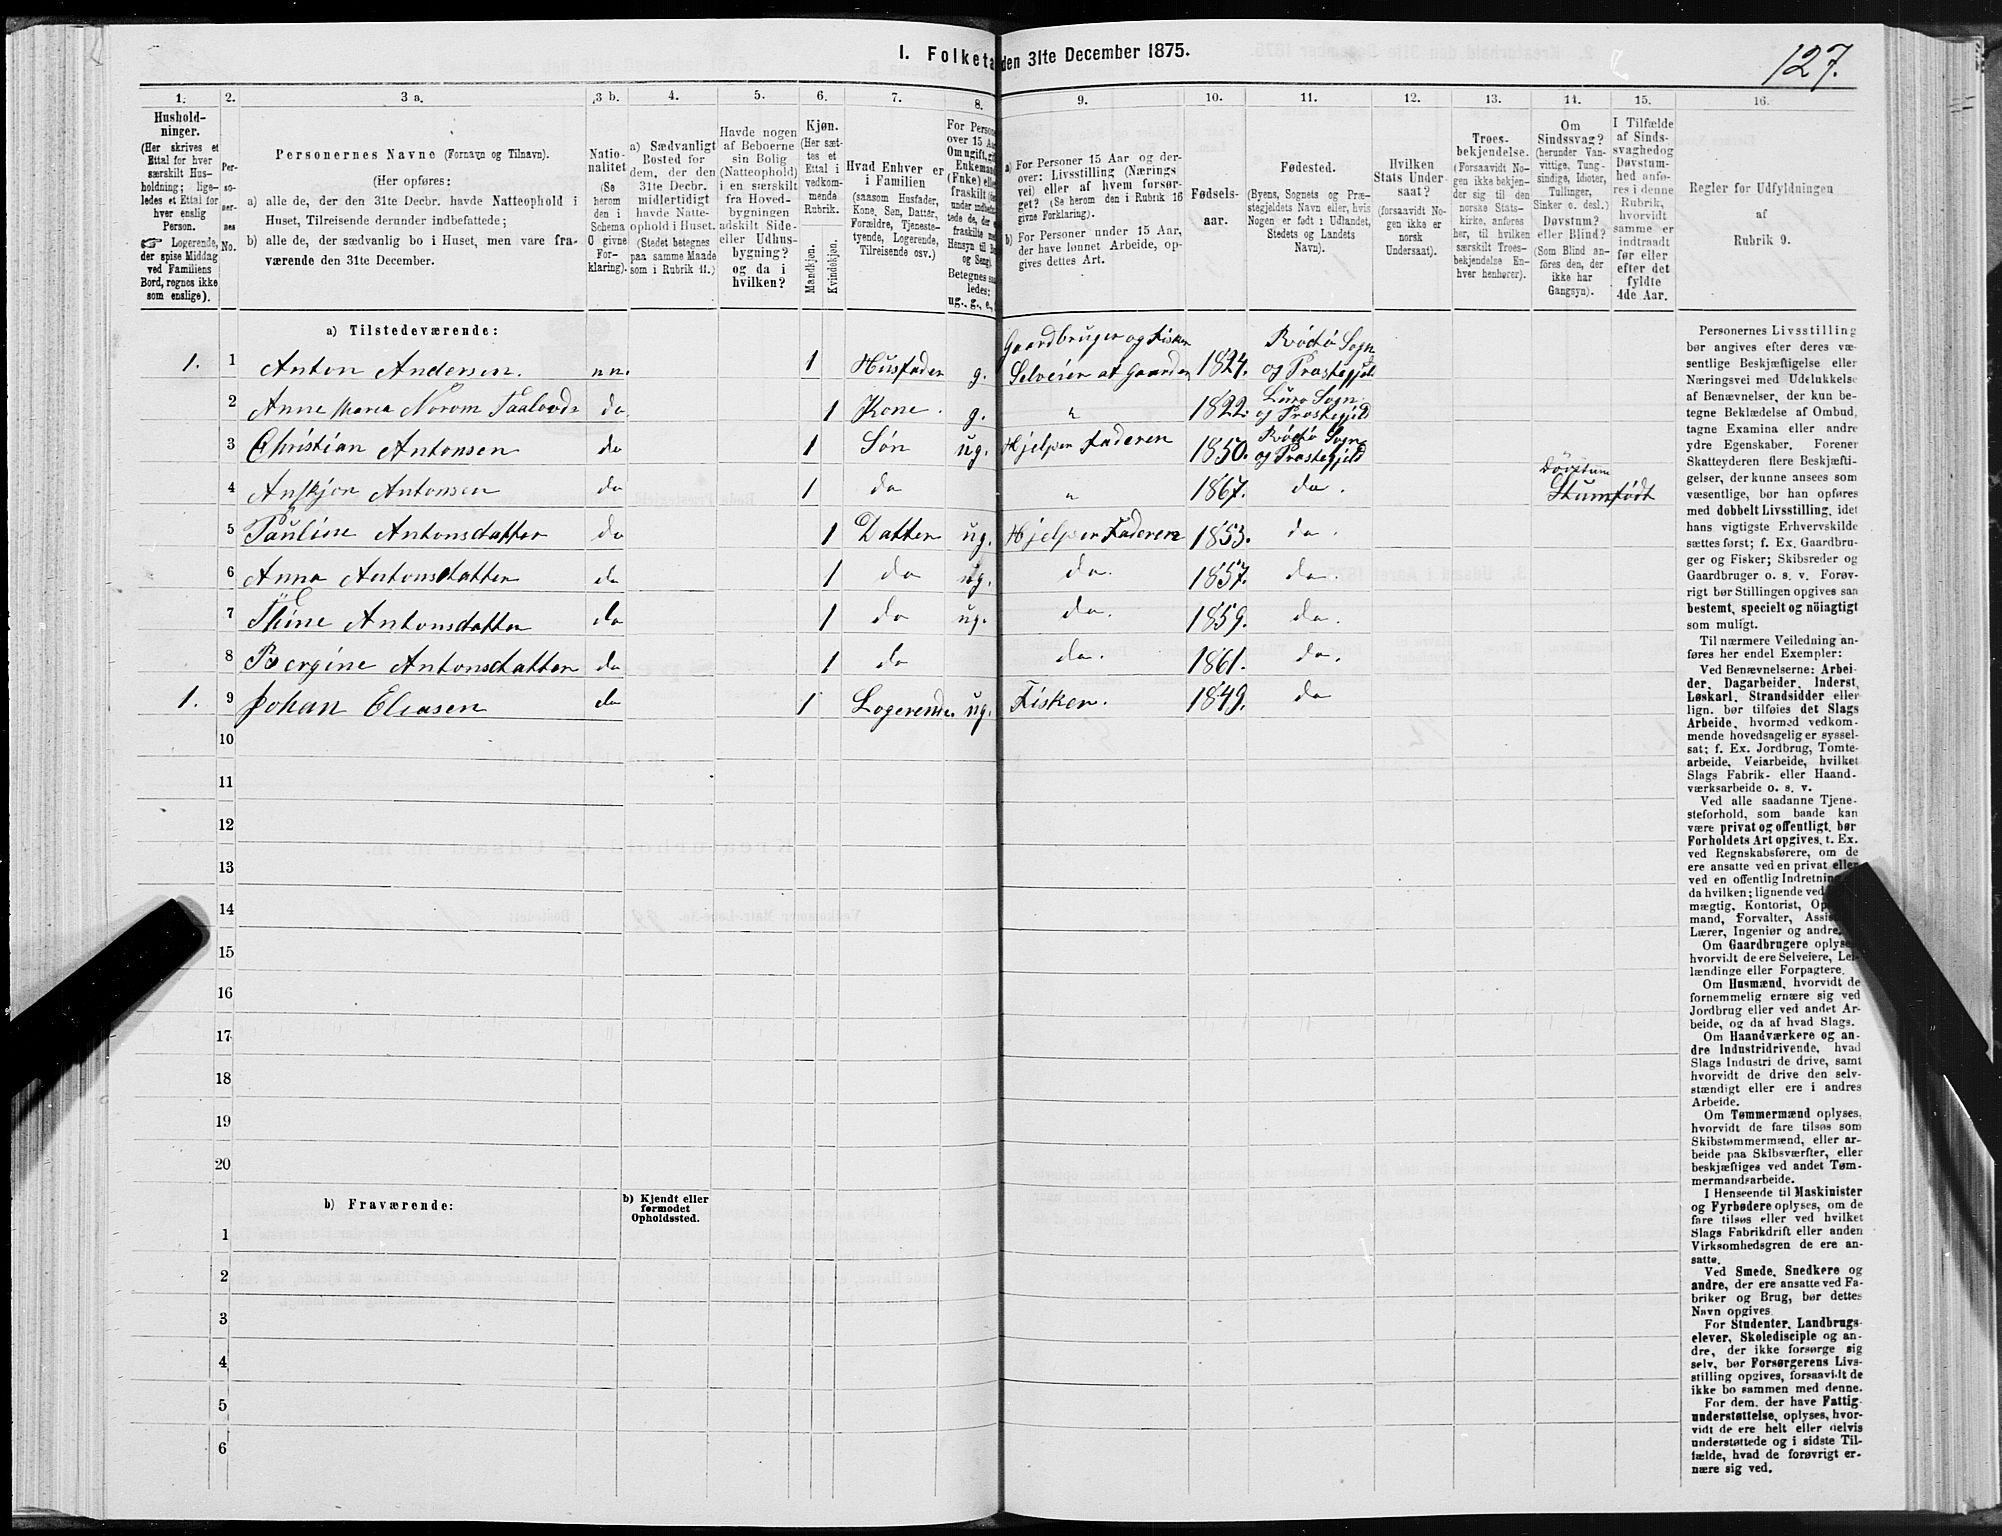 127.
I. Folketa den 31te December 1875.
1. 2. 3 a. 3 b. 4. 5. 6. 7. 8. 9. 10. 11. 12. 13. 14. 15. 16.
Hushold-
ninger.
(Her skrives et
Ettal for hver
særskilt Hus-
holdning; lige-
ledes et Ettal for
hver enslig
Person.
☞ Logerende,
der spise Middag
ved Familiens
Bord, regnes ikke
som enslige).
Per-
so-
ner-
nes
No.
Personernes Navne (Fornavn og Tilnavn).
(Her opføres:
a) alle de, der den 31te Decbr. havde Natteophold i
Huset, Tilreisende derunder indbefattede;
b) alle de, der sædvanlig bo i Huset, men vare fra-
værende den 31te December.
Natio-
nalitet
(Se
herom
den i
Schema
O givne
For-
klaring).
a) Sædvanligt
Bosted for
dem, der den
31te Decbr.
midlertidigt
havde Natte-
ophold i Huset.
(Stedet betegnes
paa samme Maade
som i Rubrik 11.)
Havde nogen
af Beboerne
sin Bolig
(Natteophold)
i en særskilt
fra Hoved-
bygningen
adskilt Side-
eller Udhus-
bygning?
og da i
hvilken?
Kjøn.
(Her sæt-
tes et
Ettal i
vedkom-
mende
Rubrik.
Mandkjøn.
Kvindekjøn.
Hvad Enhver er
i Familien
(saasom Husfader,
Kone, Søn, Datter,
Forældre, Tjeneste-
tyende, Logerende,
Tilreisende osv.)
For Persone
over 15 Aa
Om ugift, gif
Enkemand
(Enke) elle
fraskilt
Betegnes saa
ledes:
ug., g., e.,
a) For Personer 15 Aar og der-
over: Livsstilling (Nærings
vei) eller af hvem forsør-
get? (Se herom den i Rubrik 16
givne Forklaring).
b) For Personer under 15 Aar,
der have lønnet Arbeide, op-
gives dettes Art.
Fødsels-
aar.
Fødested.
(Byens, Sognets og Præ-
stegjeldets Navn eller, hvis
Nogen er født i Udlandet,
Stedets og Landets
Navn).
Hvilken
Stats Under-
saat?
(forsaavidt No-
gen ikke er
norsk
Undersaat).
Troes-
bekjendelse.
(Forsaavidt No-
gen ikke bekjen-
der sig til den
norske Stats-
kirke, anføres
her, til hvilken
særskilt Troes-
bekjendelse En-
hver henhører).
Om
Sindssvag?
(herunder Van-
vittige, Tung-
sindige, Idioter,
Tullinger,
Sinker o. desl.)
Døvstum?
eller Blind?
(Som Blind an-
føres den, der
ikke har
Gangsyn).
I Tilfælde
af Sinds-
svaghed og
Døvstum-
hed anfø-
res i denne
Rubrik,
hvorvidt
samme er
indtraadt
før eller
efter det
fyldte
4de Aar.
Regler for Udfyldningen
af
Rubrik 9.
a) Tilstedeværende:
1. 1 Anton Andersen. n n. 1 Husfader g. Gaardbruger og Fisker Selveier at Gaarden 1824. Rödö Sogn og Prastegjeld
2 Anne Maria Norom do 1 Kone. g. " 1822. Luro Sogn og Prastegjeld
3 Christian Antonsen do 1 Søn ug. Hjelper Faderen 1850. Rödö Sogn og Prastegjeld
4 Anskjor Antonsen do 1 do " 1867. do. Dövstum Stumfödt
5 Pauline Antonsdatter do 1 Datter ug. Hjelper Faderen 1853. do.
6 Anna Antonsdatter do 1 do ug. do. 1857. do.
7 Thine Antonsdatter do 1 do ug. do. 1859. do.
8 Bergine Antonsdatter do 1 do do. 1861. do.
1. 9 Johan Eliasen do 1 Logerende ug. Fisker. 1849. do
10
11
12
13
14
15
16
17
18
19
20
b) Fraværende:
b) Kjendt eller
formodet
Opholdssted.
1
2
3
4
5
6
Personernes Livsstilling
bør angives efter deres væ-
sentlige Beskjæftigelse eller
Næringsvei med Udelukkelse
af Benævnelser, der kun be-
tegne Beklædelse af Ombud,
tagne Examina eller andre
ydre Egenskaber. Forener
Skatteyderen flere Beskjæfti-
gelser, der kunne ansees som
væsentlige, bør han opføres
med dobbelt Livsstilling, idet
hans vigtigste Erhvervskilde
sættes først; f. Ex. Gaardbru-
ger og Fisker; Skibsreder og
Gaardbruger o. s. v. Forøv-
rigt bør Stillingen opgives saa
bestemt, specielt og nöiagtigt
som muligt.
Til nærmere Veiledning an-
føres her endel Exempler:
Ved Benævnelserne: Arbei-
der, Dagarbeider, Inderst,
Løskarl, Strandsidder eller
lign. bør tilføies det Slags
Arbeide, hvormed vedkom-
mende hovedsagelig er syssel-
sat; f. Ex. Jordbrug, Tomte-
arbeide, Veiarbeide, hvilket
Slags Fabrik- eller Haand-
værksarbeide o. s. v.
Ved alle saadanne Tjene-
steforhold, som baade kan
være privat og offentligt, bør
Forholdets Art opgives, t. Ex.
ved Regnskabsførere, om de
ere ansatte ved en privat eller
ved en offentlig Indretning
da hvilken; lignende ved
mægtig, Kontorist, Op
mand, Forvalter, Assis
Lærer, Ingeniør og andre.
Om Gaardbrugere oplyse
hvorvidt de ere Selveiere, Lei-
lændinge eller Forpagtere.
Om Husmænd, hvorvidt de
fornemmelig ernære sig ved
Jordbrug eller ved andet Ar-
beide, og da af hvad Slags.
Om Haandværkere og an-
dre Industridrivende, hvad
Slags Industri de drive, samt
hvorvidt de drive den selv-
stændigt eller ere i andres
Arbeide.
Om Tømmermænd oplyses,
hvorvidt de fare tilsøs som
Skibstømmermænd, eller ar-
beide paa Skibsværfter, eller
beskjæftiges ved andet Tøm-
mermandsarbeide.
I Henseende til Maskinister
og Fyrbødere oplyses, om de
fare tilsøs eller ved hvilket
Slags Fabrikdrift eller anden
Virksomhedsgren de ere an-
satte.
Ved Smede, Snedkere og
andre, der ere ansatte ved Fa-
briker og Brug, bør dettes
Navn opgives.
For Studenter, Landbrugs-
elever, Skoledisciple og an-
dre, der ikke forsørge sig
selv, bør Forsørgerens Livs-
stilling opgives, forsaavidt de
ikke bo sammen med denne.
For dem, der have Fattig-
understøttelse, oplyses, hvor-
vidt de ere helt eller delvis
understøttede og i sidste Til-
fælde, hvad de forøvrigt er-
nære sig ved.